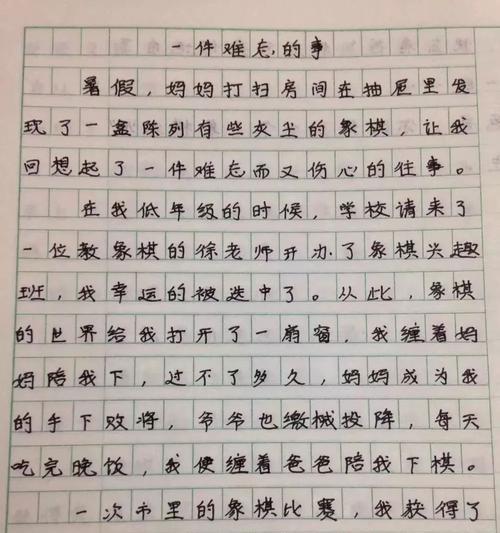 一件难忘的事
暑假，妈妈打扫房间在抽屉里发
现了一盒陈列有些灰尘的象棋，让我
回想起了一件难忘而又伤心的往事。
在我低年级的时候，学校请来了
一位教象棋的徐老师开办了象棋兴趣
班，我幸运的被选中了。从此，象棋
的世界给我打开了一扇窗，我缠着妈
妈陪我下，过不了多久，妈妈成为我
的手下败将，爷爷也缴械投降，每天
吃完晚饮，我便缠着爸爸陪我下棋。
一次市里的象棋比赛，我获得了